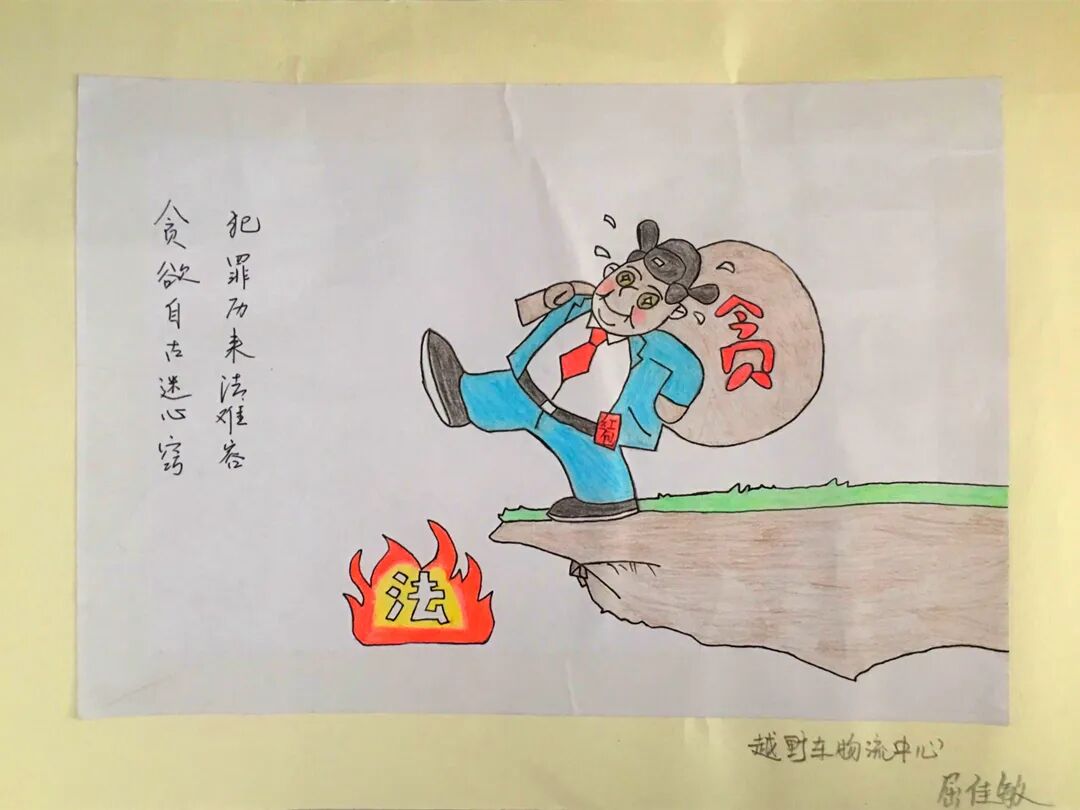 贪欲自古迷心窍
犯罪历来法难容
贪
红包
法
越野车物流中心
屈佳敏